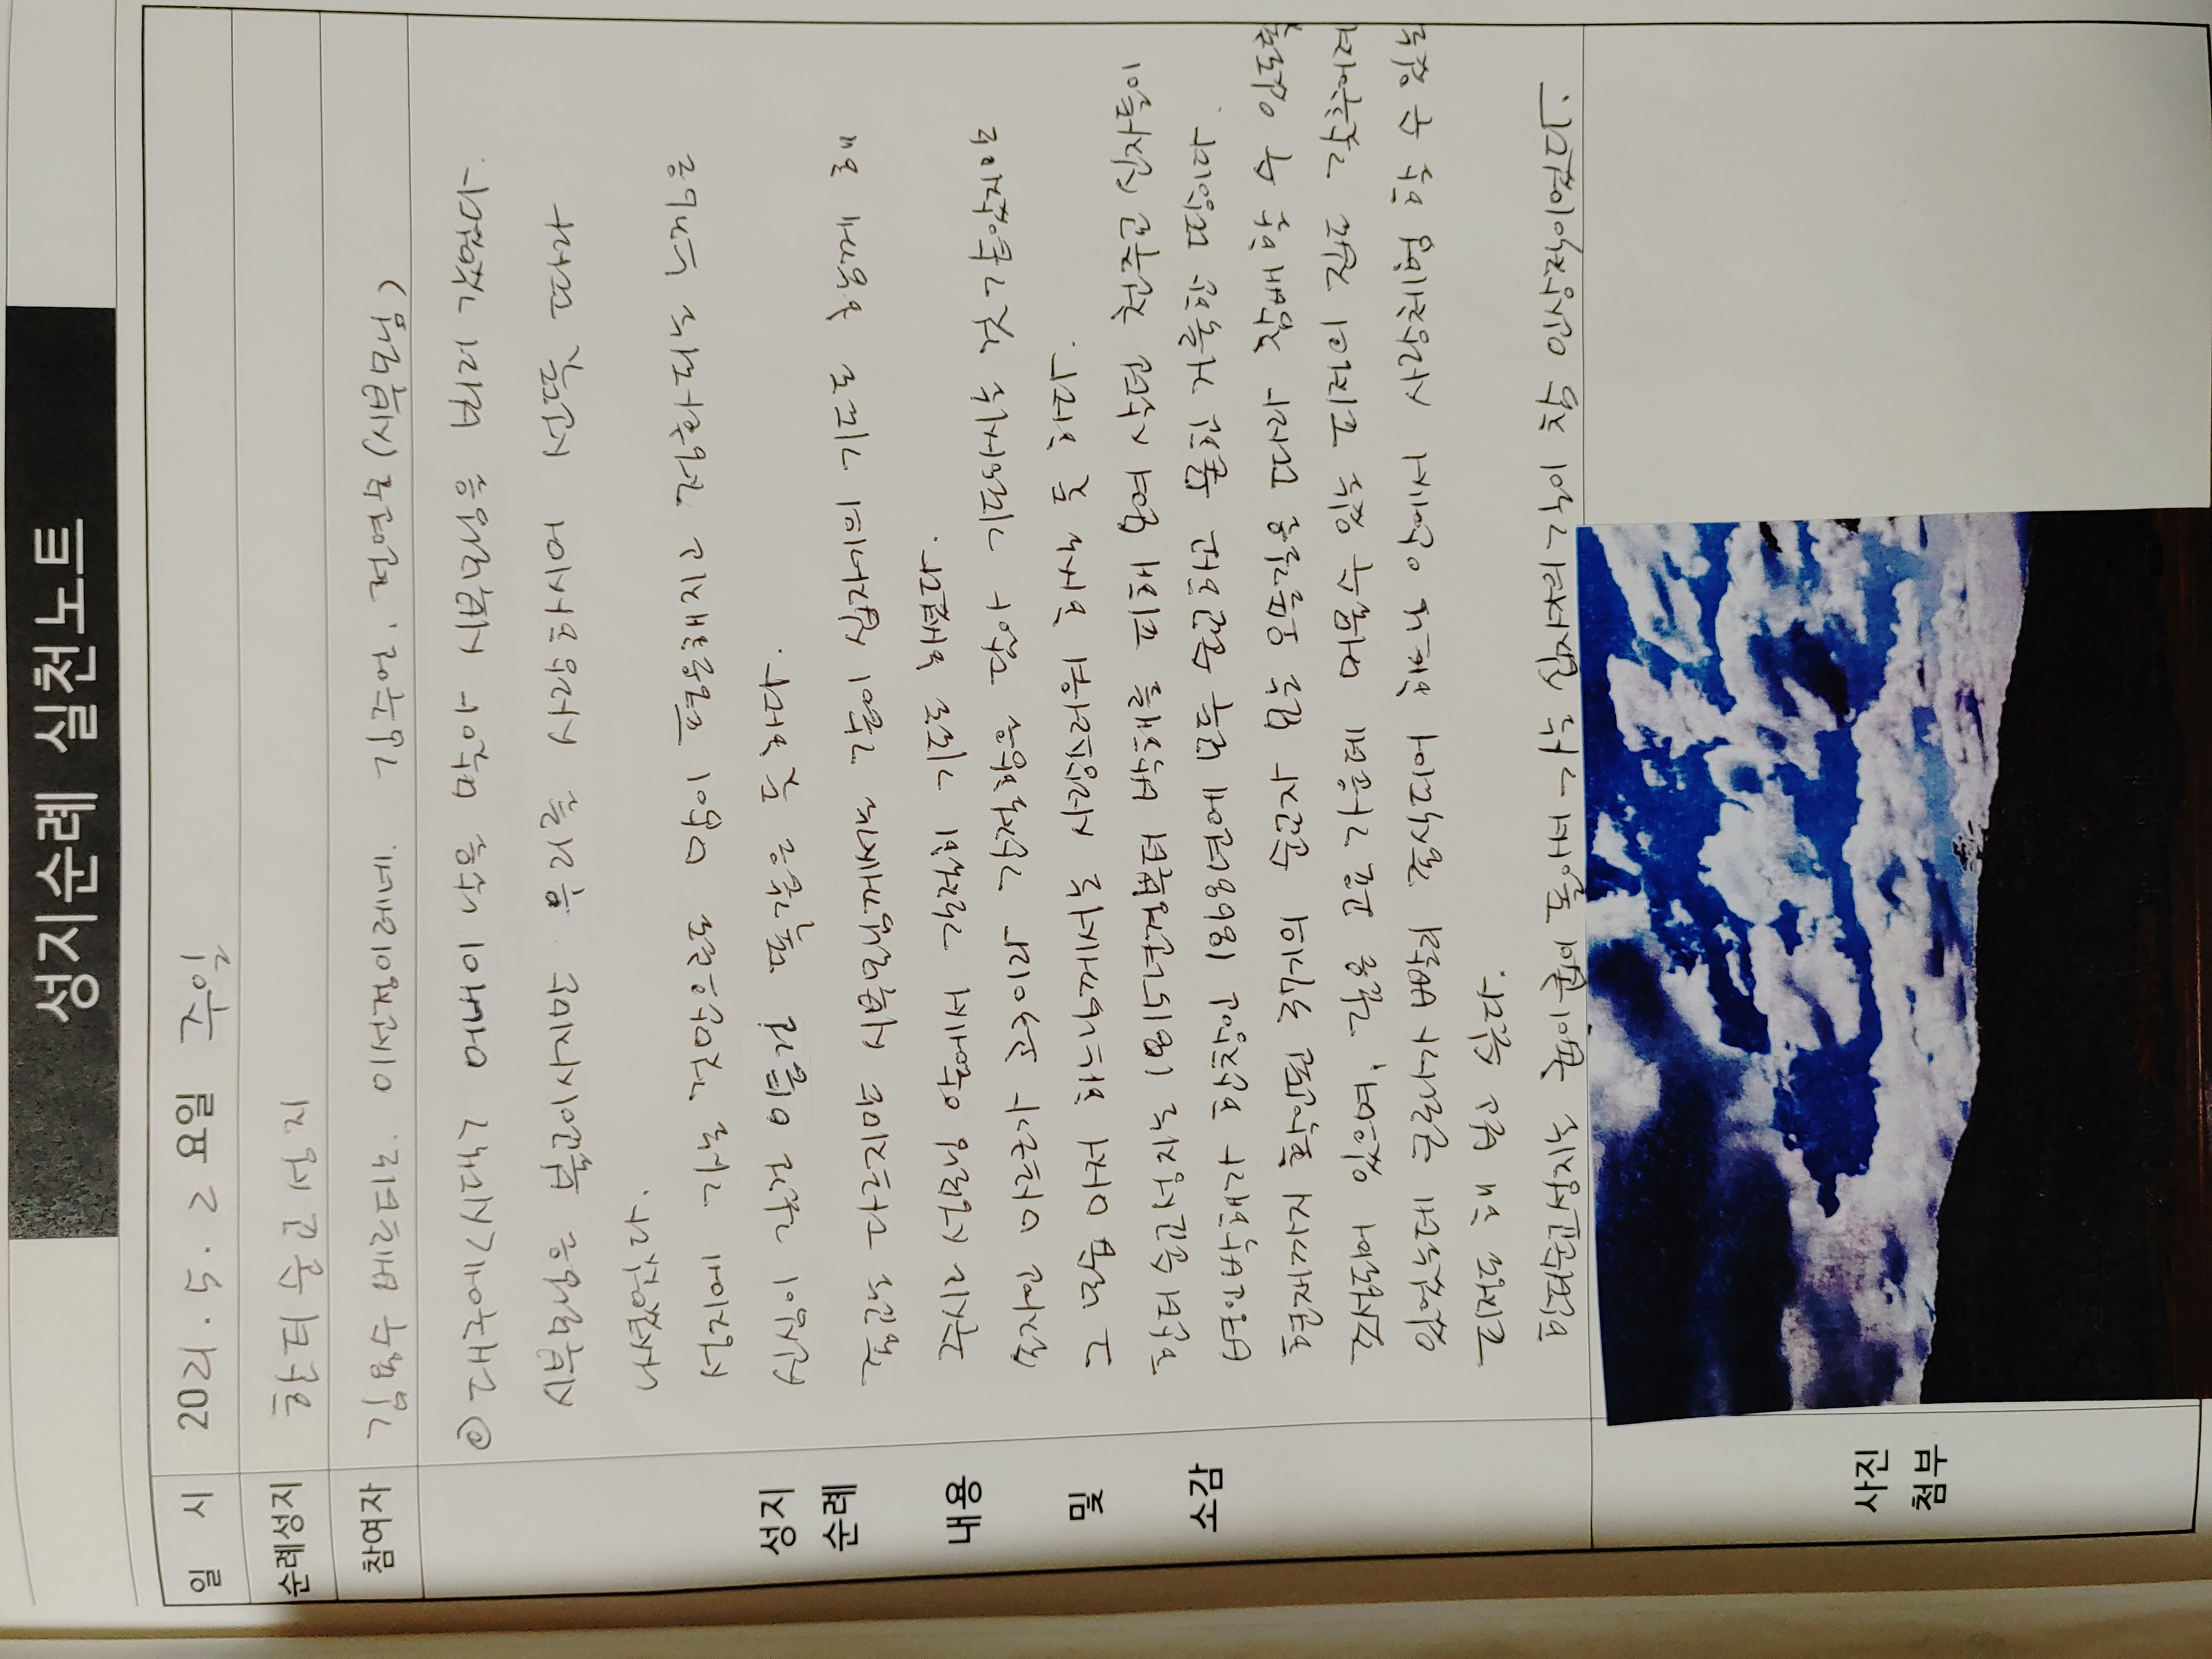 성지순례 실천노트
일 시 2021. 5. 2 요일 주일
순례성지 한티순교성지
참여자 김용수 베르티노. 이선정이레네. 김주언, 전연호(시부모님)
◎ 대구에<시댁> 어버이 날을 맞아 시부모님을 뵈러 갔었다.
시부모님은 불교이시지만 우리를 사랑하시어 선뜻 따라
나셨었다.
성지에 가는 것만으로도 맘이 평온해지고 정화되는 느낌은
신심이 깊건 얕건 똑같은 듯하다.
종교는 다르지만 시부모님께서는 같이 십자가의 기도도 함께 해
주시고 성모님 앞에서 간절히 기도도 하셨다.
손자인 마르코가 고3이라 간절함을 담아 기도하시는 것 같았지만
그 모습 마저 하느님께서는 사랑스러워 하실 듯 하다.
한티 순교성지는 1815년경부터 박해를 피해 모여 살던 천주교 신자들이
병인박해가 한창인 1868년에 모두 순교하고 묻힌 거룩한 땅이다.
현재까지 확인된 37기의 순교자 묘는 오솔길을 따라 참배 할 수 있도록
조성되어 있으며, 깊은 고요 가운데 머물수 있는 피정의 집도 갖추어져
있었는데 코로나가 빨리 종식되어 하느님 안에서 사랑체험 할 수 있는
피정도 해 보고 싶다.
한티순교성지는 굽이굽이 돌아서 가는 십자가의 길이 참 인상적이었다.
성지
순례
내용
및
소감
사진
첨부